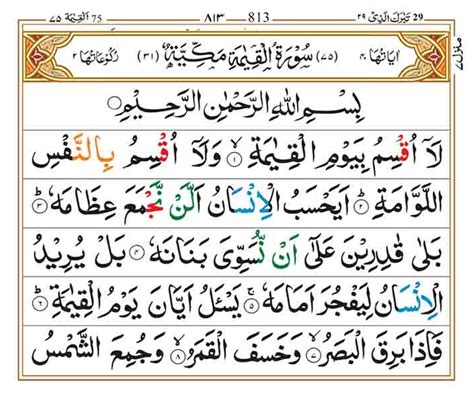 ٢٩ تَبٰرَكَ الَّذِيْ 29 813 ٨١٣ 75 اَلْقِيٰمَة ٧٥
منزل ٧
اٰيَاتُهَا ٤٠ (٧٥) سُوْرَةُ الْقِيٰمَةِ مَكِّيَّةٌ (٣١) رُكُوْعَاتُهَا ٢
بِسْمِ اللّٰهِ الرَّحْمٰنِ الرَّحِيْمِ
لَآ اُقْسِمُ بِيَوْمِ الْقِيٰمَةِ ١ وَلَآ اُقْسِمُ بِالنَّفْسِ
اللَّوَّامَةِ ٢ اَيَحْسَبُ الْاِنْسَانُ اَلَّنْ نَّجْمَعَ عِظَامَهٗ ٣
بَلٰى قٰدِرِيْنَ عَلٰٓى اَنْ نُّسَوِّيَ بَنَانَهٗ ٤ بَلْ يُرِيْدُ
الْاِنْسَانُ لِيَفْجُرَ اَمَامَهٗ ٥ يَسْـَٔلُ اَيَّانَ يَوْمُ الْقِيٰمَةِ ٦
فَاِذَا بَرِقَ الْبَصَرُ ٧ وَخَسَفَ الْقَمَرُ ٨ وَجُمِعَ الشَّمْسُ